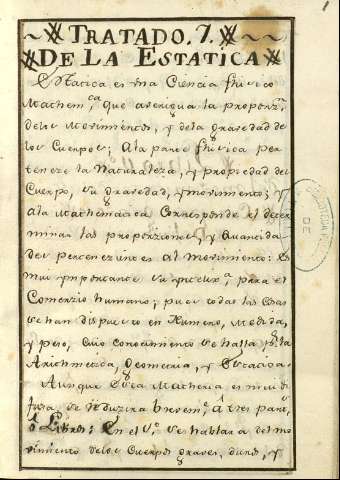 TRATADO. 7.
DE LA ESTATICA
Estatica es vna Ciencia fhisico
Mathem.ca que averigua la proporz.n
delos Movimientos, y dela gravedad de
los Cuerpos; Ala parte fhisica per
tenere la Naturaleza, y propiedad del
Cuerpo, su gravedad, y movimiento; y
Ala Mathematica Corresponde el deter
minar las proporziones, y
des pertenezientes al movimiento: Es
mui ynportante su para el
Comerzio humano; pues todas las cosas
se han dispuesto en Numero, Medida,
y peso, cuio Conocimiento se halla p.r la
Arithmetica, Geometria, y Estatica.
Aunque Esta Matheria es mui di
fusa, se rreduzira brevem.e â tres partes,
ô Libros: En el 1.o se hablara del mo
vimiento delos Cuerpos graves, duros, y